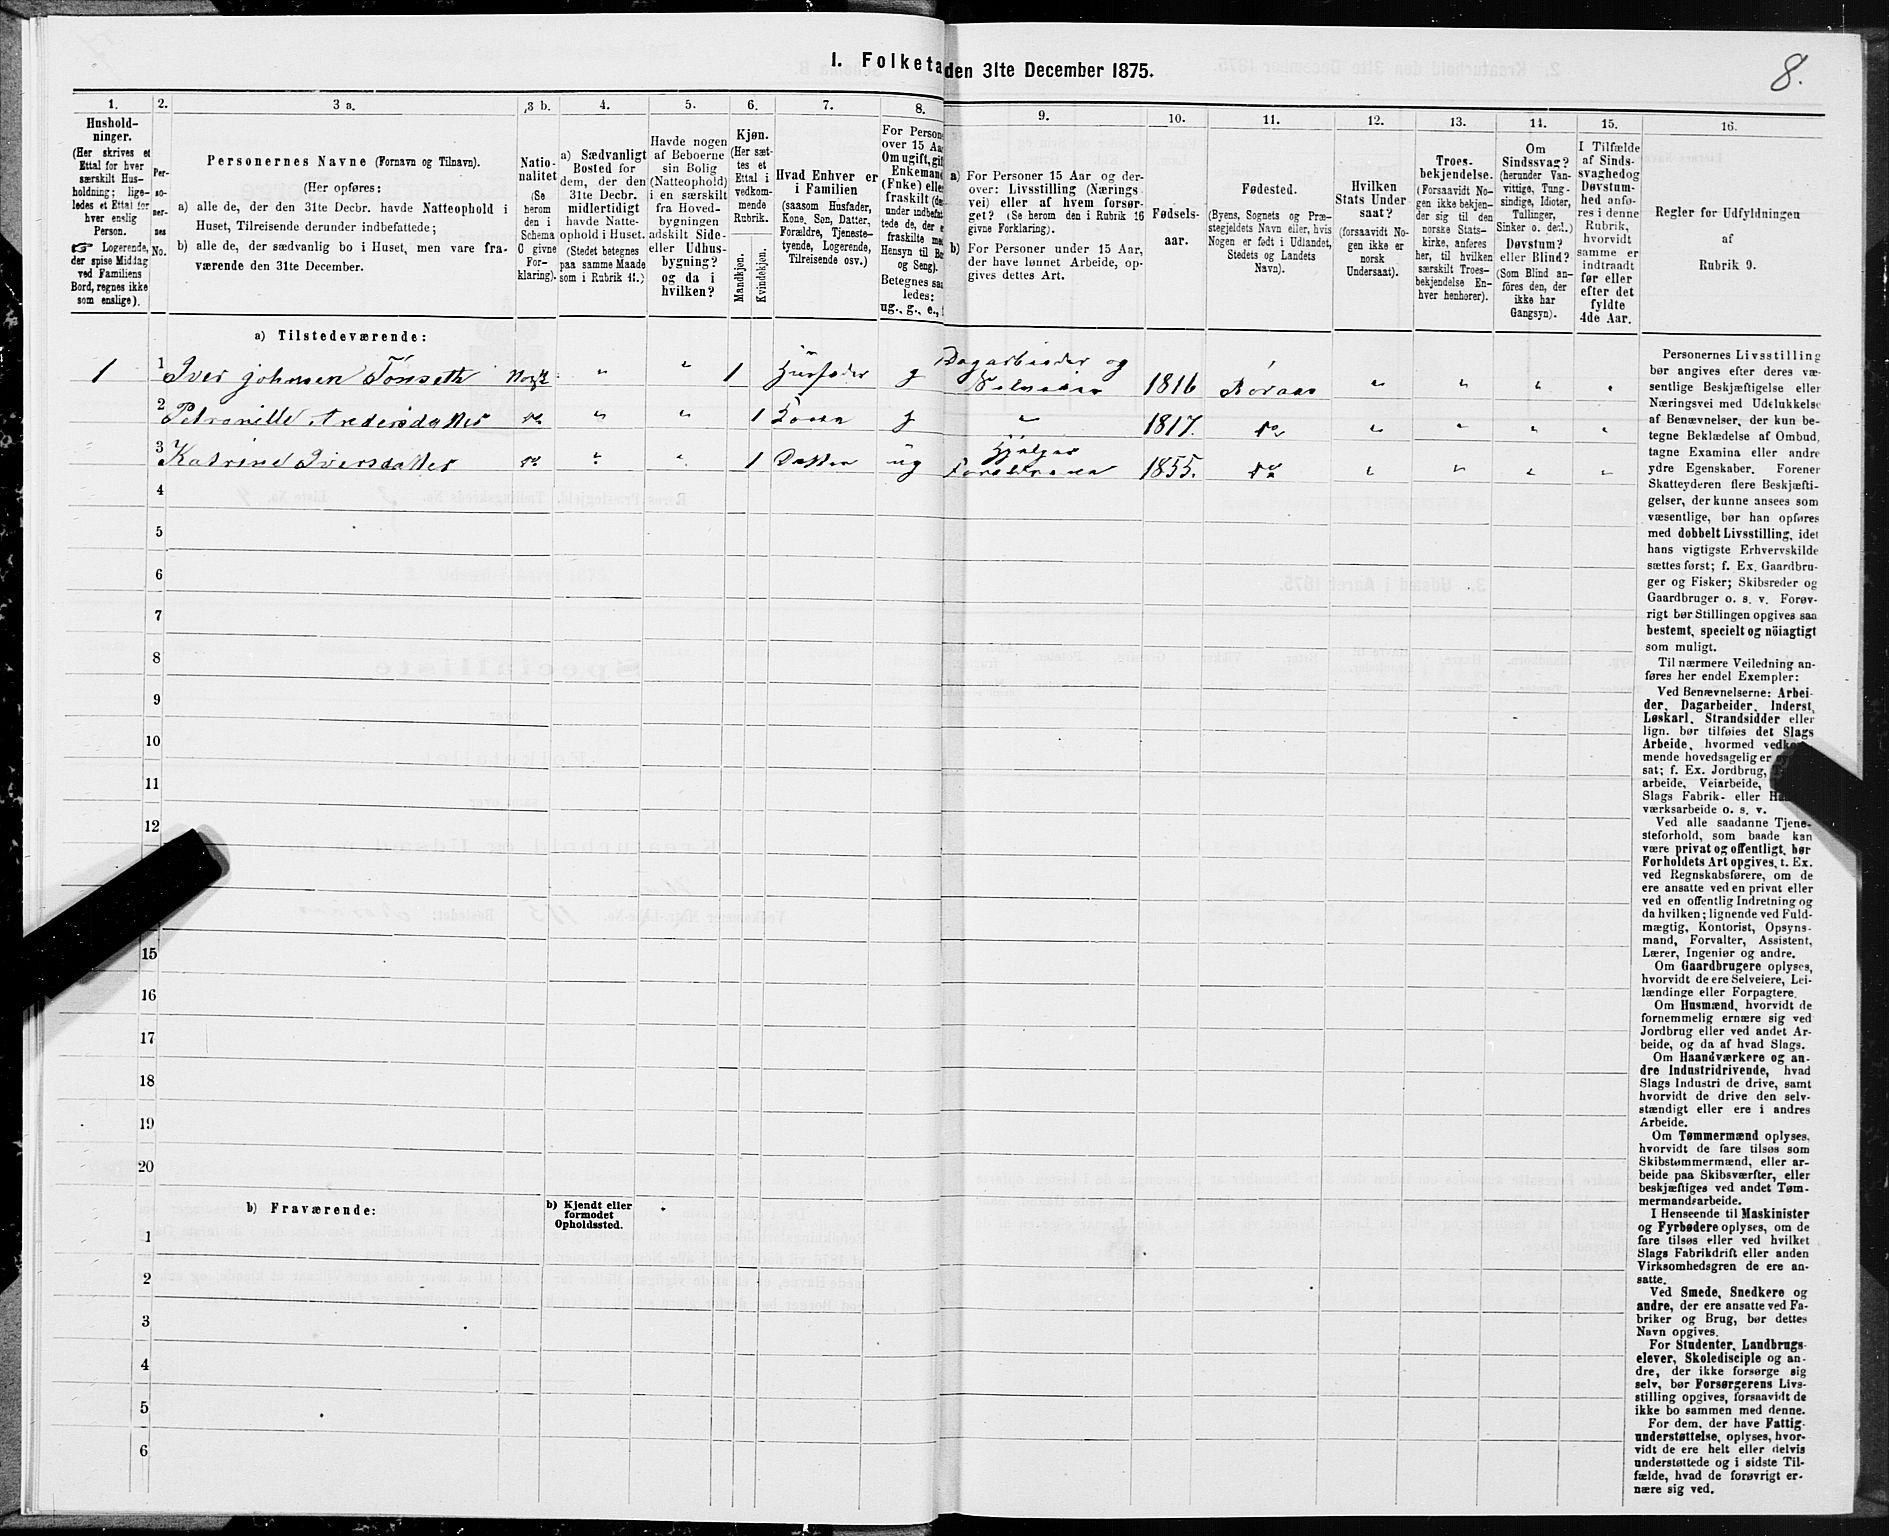 I. Folketa
den 31te December 1875.
8.
1.
2.
3 a.
3 b.
4.
5.
6.
7.
8.
9.
10.
11.
12.
13.
14.
15.
16.
Hushold-
ninger.
(Her skrives et
Ettal for hver
særskilt Hus-
holdning; lige-
ledes et Ettal for
hver enslig
Person.
☞ Logerende,
der spise Middag
ved Familiens
Bord, regnes ikke
som enslige).
Per-
so-
ner-
nes
No.
Personernes Navne (Fornavn og Tilnavn).
(Her opføres:
a) alle de, der den 31te Decbr. havde Natteophold i
Huset, Tilreisende derunder indbefattede;
b) alle de, der sædvanlig bo i Huset, men vare fra-
værende den 31te December.
Natio-
nalitet
(Se
herom
den i
Schema
O givne
For-
klaring).
a) Sædvanligt
Bosted for
dem, der den
31te Decbr.
midlertidigt
havde Natte-
ophold i Huset.
(Stedet betegnes
paa samme Maade
som i Rubrik 11.)
Havde nogen
af Beboerne
sin Bolig
(Natteophold)
i en særskilt
fra Hoved-
bygningen
adskilt Side-
eller Udhus-
bygning?
og da i
hvilken?
Kjøn.
(Her sæt-
tes et
Ettal i
vedkom-
mende
Rubrik.
Mandkjøn.
Kvindekjøn.
Hvad Enhver er
i Familien
(saasom Husfader,
Kone, Søn, Datter,
Forældre, Tjeneste-
tyende, Logerende,
Tilreisende osv.)
For Person
over 15 Aa
Om ugift, gif
Enkemand
(Enke) elle
fraskilt (de
under indbefat
tede de, der e
fraskilte me
Hensyn til Bo
og Seng).
Betegnes saa
ledes:
ug., g., e., f
a) For Personer 15 Aar og der-
over: Livsstilling (Nærings
vei) eller af hvem forsør-
get? (Se herom den i Rubrik 16
givne Forklaring).
b) For Personer under 15 Aar,
der have lønnet Arbeide, op-
gives dettes Art.
Fødsels-
aar.
Fødested.
(Byens, Sognets og Præ-
stegjeldets Navn eller, hvis
Nogen er født i Udlandet,
Stedets og Landets
Navn).
Hvilken
Stats Under
saat?
(forsaavidt No-
gen ikke er
norsk
Undersaat).
Troes-
bekjendelse.
(Forsaavidt No-
gen ikke bekjen-
der sig til den
norske Stats-
kirke, anføres
her, til hvilken
særskilt Troes-
bekjendelse En-
hver henhører).
Om
Sindssvag?
(herunder Van-
vittige, Tung-
sindige, Idioter,
Tullinger,
Sinker o. desl.)
Døvstum?
eller Blind?
(Som Blind an-
føres den, der
ikke har
Gangsyn).
I Tilfælde
af Sinds-
svaghed og
Døvstum-
hed anfø-
res i denne
Rubrik,
hvorvidt
samme er
indtraadt
før eller
efter det
fyldte
4de Aar.
Regler for Udfyldningen
af
Rubrik 9.
a) Tilstedeværende:
1 1 Iver Johnsen Tönseth Norsk " " 1 Husfader g Dagarbeider og
Selveier 1816 Röraas " " " "
2 Petronille Andersdatter do " " 1 Kone g " 1817. do " " " "
3 Katrine Iversdatter do " " 1 Datter ug Hjælper
Forældrene 1855. do " " " "
4
5
6
7
8
9
10
11
12
15
16
17
18
19
20
b) Fraværende:
b) Kjendt eller
formodet
Opholdssted.
1
2
3
4
5
6
Personernes Livsstilling
bør angives efter deres væ-
sentlige Beskjæftigelse eller
Næringsvei med Udelukkelse
af Benævnelser, der kun be-
tegne Beklædelse af Ombud,
tagne Examina eller andre
ydre Egenskaber. Forener
Skatteyderen flere Beskjæfti-
gelser, der kunne ansees som
væsentlige, bør han opføres
med dobbelt Livsstilling, idet
hans vigtigste Erhvervskilde
sættes først; f. Ex. Gaardbru-
ger og Fisker; Skibsreder og
Gaardbruger o. s. v. Forøv-
rigt bør Stillingen opgives saa
bestemt, specielt og nöiagtigt
som muligt.
Til nærmere Veiledning an-
føres her endel Exempler:
Ved Benævnelserne: Arbei-
der, Dagarbeider, Inderst,
Løskarl, Strandsidder eller
lign. bør tilføies det Slags
Arbeide, hvormed vedkom-
mende hovedsagelig er
sat; f. Ex. Jordbrug,
arbeide, Veiarbeide,
Slags Fabrik- eller Ha
værksarbeide o. s. v.
Ved alle saadanne Tjene-
steforhold, som baade kan
være privat og offentligt, bør
Forholdets Art opgives, t. Ex.
ved Regnskabsførere, om de
ere ansatte ved en privat eller
ved en offentlig Indretning og
da hvilken; lignende ved Fuld-
mægtig, Kontorist, Opsyns-
mand, Forvalter, Assistent,
Lærer, Ingeniør og andre.
Om Gaardbrugere oplyses,
hvorvidt de ere Selveiere, Lei-
lændinge eller Forpagtere.
Om Husmænd, hvorvidt de
fornemmelig ernære sig ved
Jordbrug eller ved andet Ar-
beide, og da af hvad Slags.
Om Haandværkere og an-
dre Industridrivende, hvad
Slags Industri de drive, samt
hvorvidt de drive den selv-
stændigt eller ere i andres
Arbeide.
Om Tømmermænd oplyses,
hvorvidt de fare tilsøs som
Skibstømmermænd, eller ar-
beide paa Skibsværfter, eller
beskjæftiges ved andet Tøm-
mermandsarbeide.
I Henseende til Maskinister
og Fyrbødere oplyses, om de
fare tilsøs eller ved hvilket
Slags Fabrikdrift eller anden
Virksomhedsgren de ere an-
satte.
Ved Smede, Snedkere og
andre, der ere ansatte ved Fa-
briker og Brug, bør dettes
Navn opgives.
For Studenter, Landbrugs-
elever, Skoledisciple og an-
dre, der ikke forsørge sig
selv, bør Forsørgerens Livs-
stilling opgives, forsaavidt de
ikke bo sammen med denne.
For dem, der have Fattig-
understøttelse, oplyses, hvor-
vidt de ere helt eller delvis
understøttede og i sidste Til-
fælde, hvad de forøvrigt er-
nære sig ved.